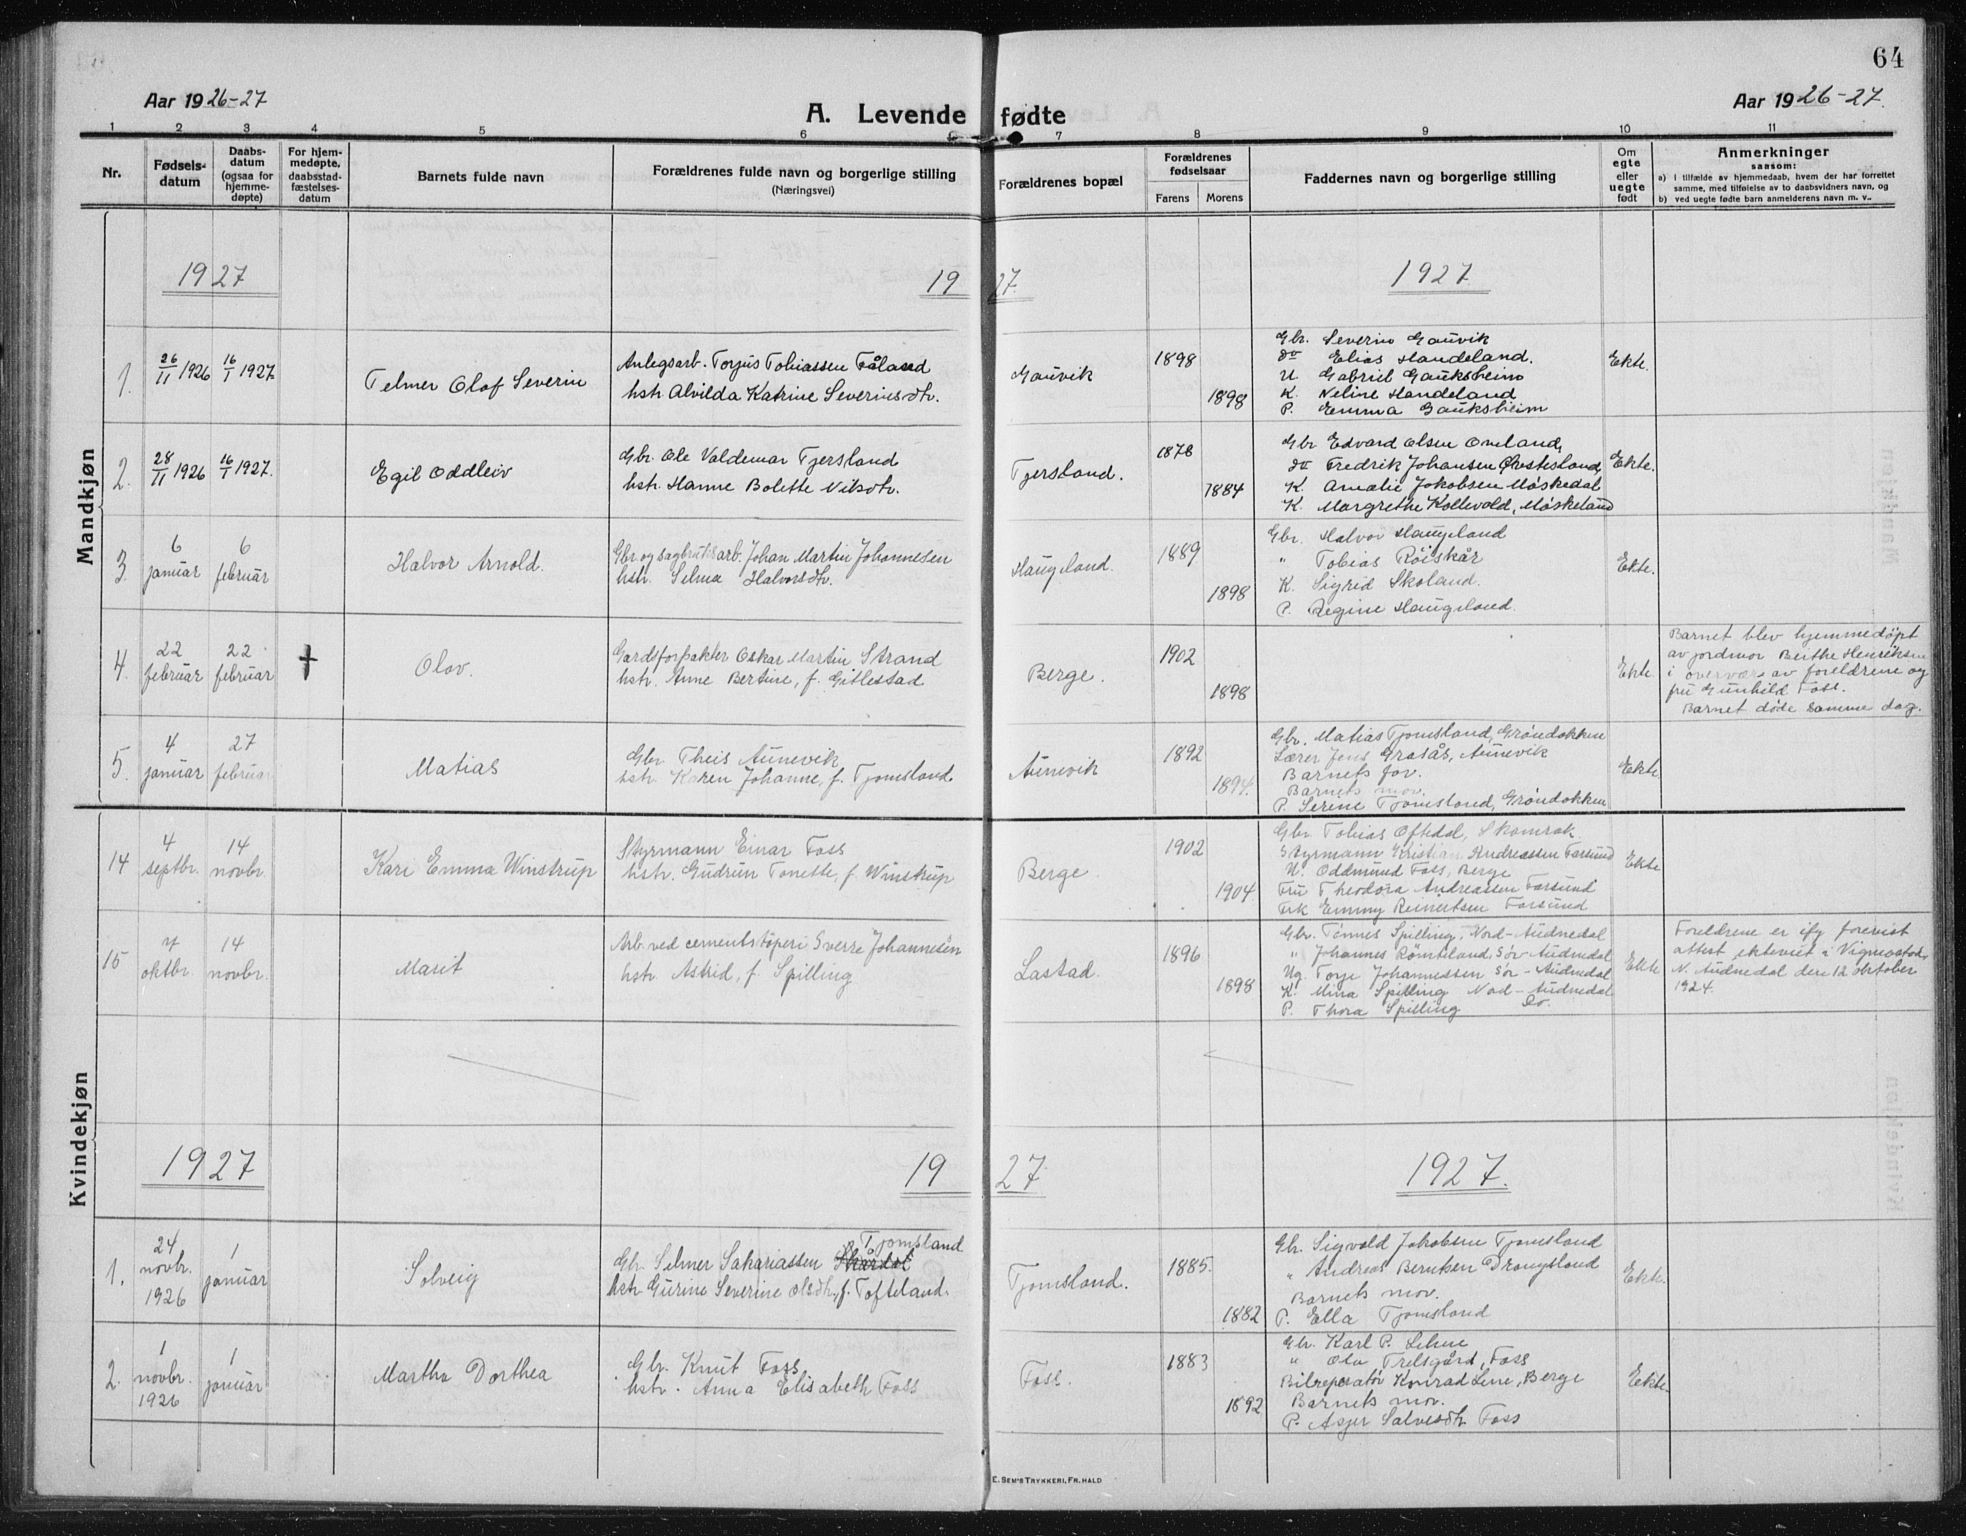 64
Aar 1926-27
A. Levende fødte
Aar 1926-27.
1 2 3 4 5 6 7 8 9 10 11
Nr.
Fødsels-
datum
Daabs-
datum
(ogsaa for
hjemme-
døpte)
For hjem-
medøpte,
daabsstad-
fæstelses-
datum
Barnets fulde navn
Forældrenes fulde navn og borgerlige stilling
(Næringsvei)
Forældrenes bopæl
Forældrenes
fødselsaar
Farens Morens
Faddernes navn og borgerlige stilling
Om
egte
eller
uegte
født
Anmerkninger
saasom:
a) i tilfælde av hjemmedaab, hvem der har forrettet
samme, med tilføielse av to daabsvidners navn, og
b) ved uegte fødte barn anmelderens navn m. v..
Mandkjøn
1927 1927. 1927
1. 26/11 1926 16/1 1927
Telmer Olaf Severin
Anlegsarb. Torjus Tobiassen Fåland
hstr. Alvilda Katrine Severinsdtr.
Gauvik
1898
1898
Gbr. Severin Gauvik
do Elias Handeland.
U. Gabriel Gauksheim
K. Neline Handeland
P. Emma Gauksheim
Ekte.
2. 28/11 1926 16/1 1927.
Egil Oddleiv
Gbr. Ole Valdemar Tjersland
hstr. Hanne Bolette Nilsdtr.
Tjersland.
1878
1884
Gbr Edvard Olsen Omland,
do Fredrik Johansen Østesland,
K. Amalie Jakobsen Møskedal
K. Margrethe Kollevold, Møskeland
Ekte.
3. 6 januar 6 februar
Halvor Arnold.
Gbr og sagbruksarb. Johan Martin Johannesen
hstr. Selma Halvorsdtr.
Haugland.
1889
1898
Gbr. Halvor Haugeland
" Tobias Röiskår
K. Sigrid Skoland.
P. Regine Haugeland.
Ekte.
4. 22 februar 22 februar †
Olav.
Gardsforpakter Oskar Martin Strand
hstr. Anne Bertine, f. Gitlestad
Berge.
1902
1898
Ekte.
Barnet blev hjemmedöpt
av jordmor Berthe Henriksen
i overvær av foreldrene og
fru Gunhild Foss.
Barnet døde samme dag.
5. 4 januar 27 februar
Matias
Gbr Theis Aunevik
hstr. Karen Johanne, f. Tjomsland.
Aunevik
1892
1894.
Gbr. Matias Tjomsland, Gröndokken
Lærer Jens Gråsås, Aunevik
Barnets far.
Barnets mor.
P. Serine Tjomsland, Gröndokken
Ekte
Kvindekjøn
14 4 septbr. 14 novbr.
Kari Emma Winstrup
Styrmann Einar Foss
hstr. Gudrun Tonette, f. Winstrup
Berge.
1902
1904
Gbr. Tobias Oftedal, Skomrak.
Styrmann Kristian Andreassen Farsund
U. Oddmund Foss, Berge
Fru Theodora Andreassen Farsund
Frk Emmy Reinertsen Farsund
Ekte
15 7 oktbr. 14 novbr.
Marit
Arb ved cementstöperi Sverre Johannesen
hstr Astrid, f. Spilling
Lastad.
1896
1898
Gbr. Tönnes Spilling, Nord-Audnedal
" Johannes Römteland, Sör-Audnedal
Ug. Torje Johannessen Sör-Audnedal
K. Mina Spilling Nord-Audnedal
P. Thora Spilling Do.
Ekte
Foreldrene er ifg forevist
attest ekteviet i Vigmostad,
N. Audnedal den 12 oktober
1924.
1927 1927. 1927.
1. 24 novbr. 1926 1 januar
Solveig
Gbr Selmer Sakariassen Tjomsland
hstr Gurine Severine Olsdtr, f. Tofteland.
Tjomsland.
1885.
1882
Gbr. Sigvald Jakobsen Tjomsland
" Andreas Berntsen Drangsland
Barnets mor.
P. Ella Tjomsland
Ekte.
2. 1 novbr. 1926 1 januar
Martha Dorthea
Gbr. Knut Foss
hstr. Anna Elisabeth Foss
Foss.
1883
1892
Gbr. Karl P. Lehne
" Ola Trelsgård, Foss
Bilreparatör Konrad Lene, Berge
Barnets mor.
P. Asjer Salvesdtr Foss
Ekte.
E. SEM'S TRYKKERI, FR.HALD